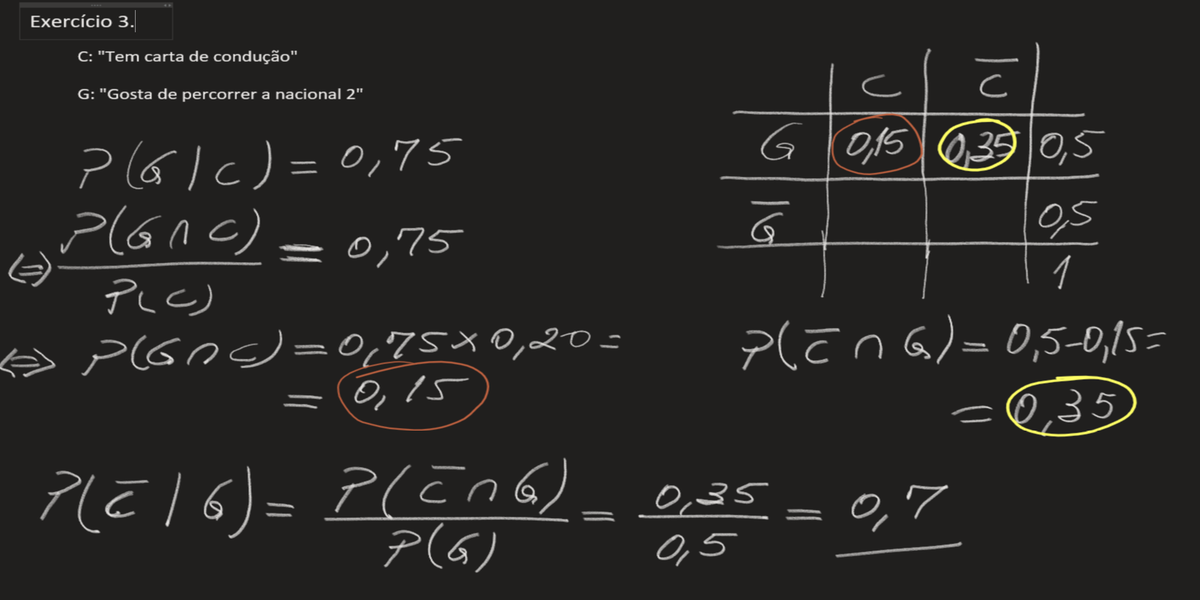 Exercício 3.
C: "Tem carta de condução"
G: "Gosta de percorrer a nacional 2"
P(G|C) = 0,75
(=) P(G∩C) / P(C) = 0,75
(=) P(G∩C) = 0,75 × 0,20 =
= 0,15
C C̅
G 0,15 0,35 0,5
G̅ 0,5
1
P(C̅ ∩ G) = 0,5-0,15=
= 0,35
P(C̅ | G) = P(C̅ ∩ G) / P(G) = 0,35 / 0,5 = 0,7